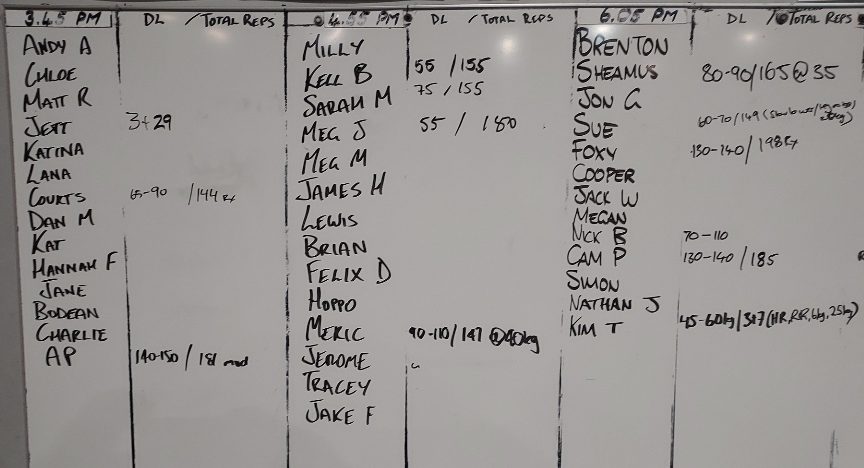 3.45 PM DL / TOTAL REPS
ANDY A
CHLOE
MATT R
JETT 3+29
KATINA
LANA
COURTS 65-90 / 144 Rx
DAN M
KAT
HANNAH F
JANE
BODEAN
CHARLIE
AP 140-150 / 181 mod
4.55 PM DL / TOTAL REPS
MILLY
KELL B 55 / 155
SARAH M 75 / 155
MEG J 55 / 180
MEG M
JAMES H
LEWIS
BRIAN
FELIX D
HOPPO
MERIC 90-110 / 147 @40kg
JEROME
TRACEY
JAKE F
6.05 PM DL / TOTAL REPS
BRENTON
SHEAMUS 80-90/165@35
JON G
SUE 60-70/149
FOXY 130-140/198Rx
COOPER
JACK W
MEGAN
NICK B 70-110
CAM P 130-140 / 185
SIMON
NATHAN J
KIM T 45-60kg/317(HR,RR,6kg,25kg)